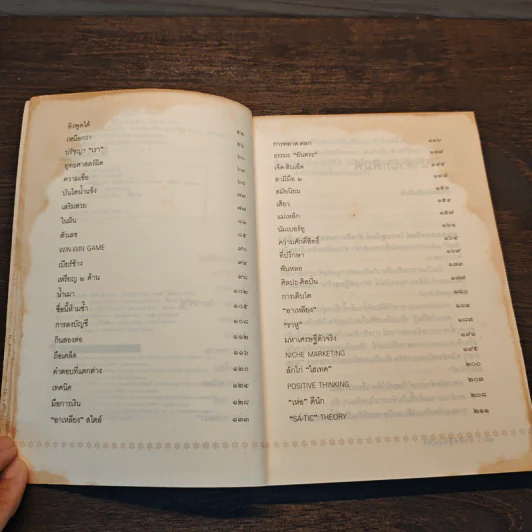 ลิงพูดได้ ๕๒
เหนือกว่า ๕๖
ปรัชญา "เรา" ๖๐
ยุทธศาสตร์ผีเสื้อ ๖๔
ความเชื่อ ๖๘
บันไดน้ำแข็ง ๗๑
เสริมสวย ๗๘
ในฝัน ๘๑
ตัวเลข ๘๕
WIN-WIN GAME ๙๐
เบียร์ช้าง ๙๔
เหรียญ ๒ ด้าน ๙๘
น้ำเมา ๑๐๒
ชื่อนี้ห้ามซ้ำ ๑๐๕
การลงบัญชี ๑๐๘
กินสองต่อ ๑๑๒
ถือเคล็ด ๑๑๖
คำตอบที่แตกต่าง ๑๒๐
เทคนิค ๑๒๔
มือการเงิน ๑๒๘
"อาเหลียง" สไตล์ ๑๓๓
การตลาด-ตลก
ธรรมะ "ยันตระ"
เจ็ด-สิบเอ็ด ๑๔๔
สามีมือ ๒ ๑๔๗
สมัยนิยม ๑๕๑
เสี่ยว ๑๕๔
แม่เหล็ก ๑๕๗
นัมเบอร์ยู ๑๖๑
ความศักดิ์สิทธิ์ ๑๖๔
ที่ปรึกษา ๑๖๙
พันหลย ๑๗๓
ศิลปะ-ศิลปิน ๑๗๗
การเติบโต ๑๘๐
"อาเหลียง" ๑๘๔
"ราหู" ๑๘๗
มหาเศรษฐีตัวจริง ๑๙๑
NICHE MARKETING ๑๙๕
ลักไก่ "ไฮเทค" ๒๐๐
POSITIVE THINKING ๒๐๓
"เห่อ" ดีนัก ๒๐๘
"SA-TIC" THEORY ๒๑๑